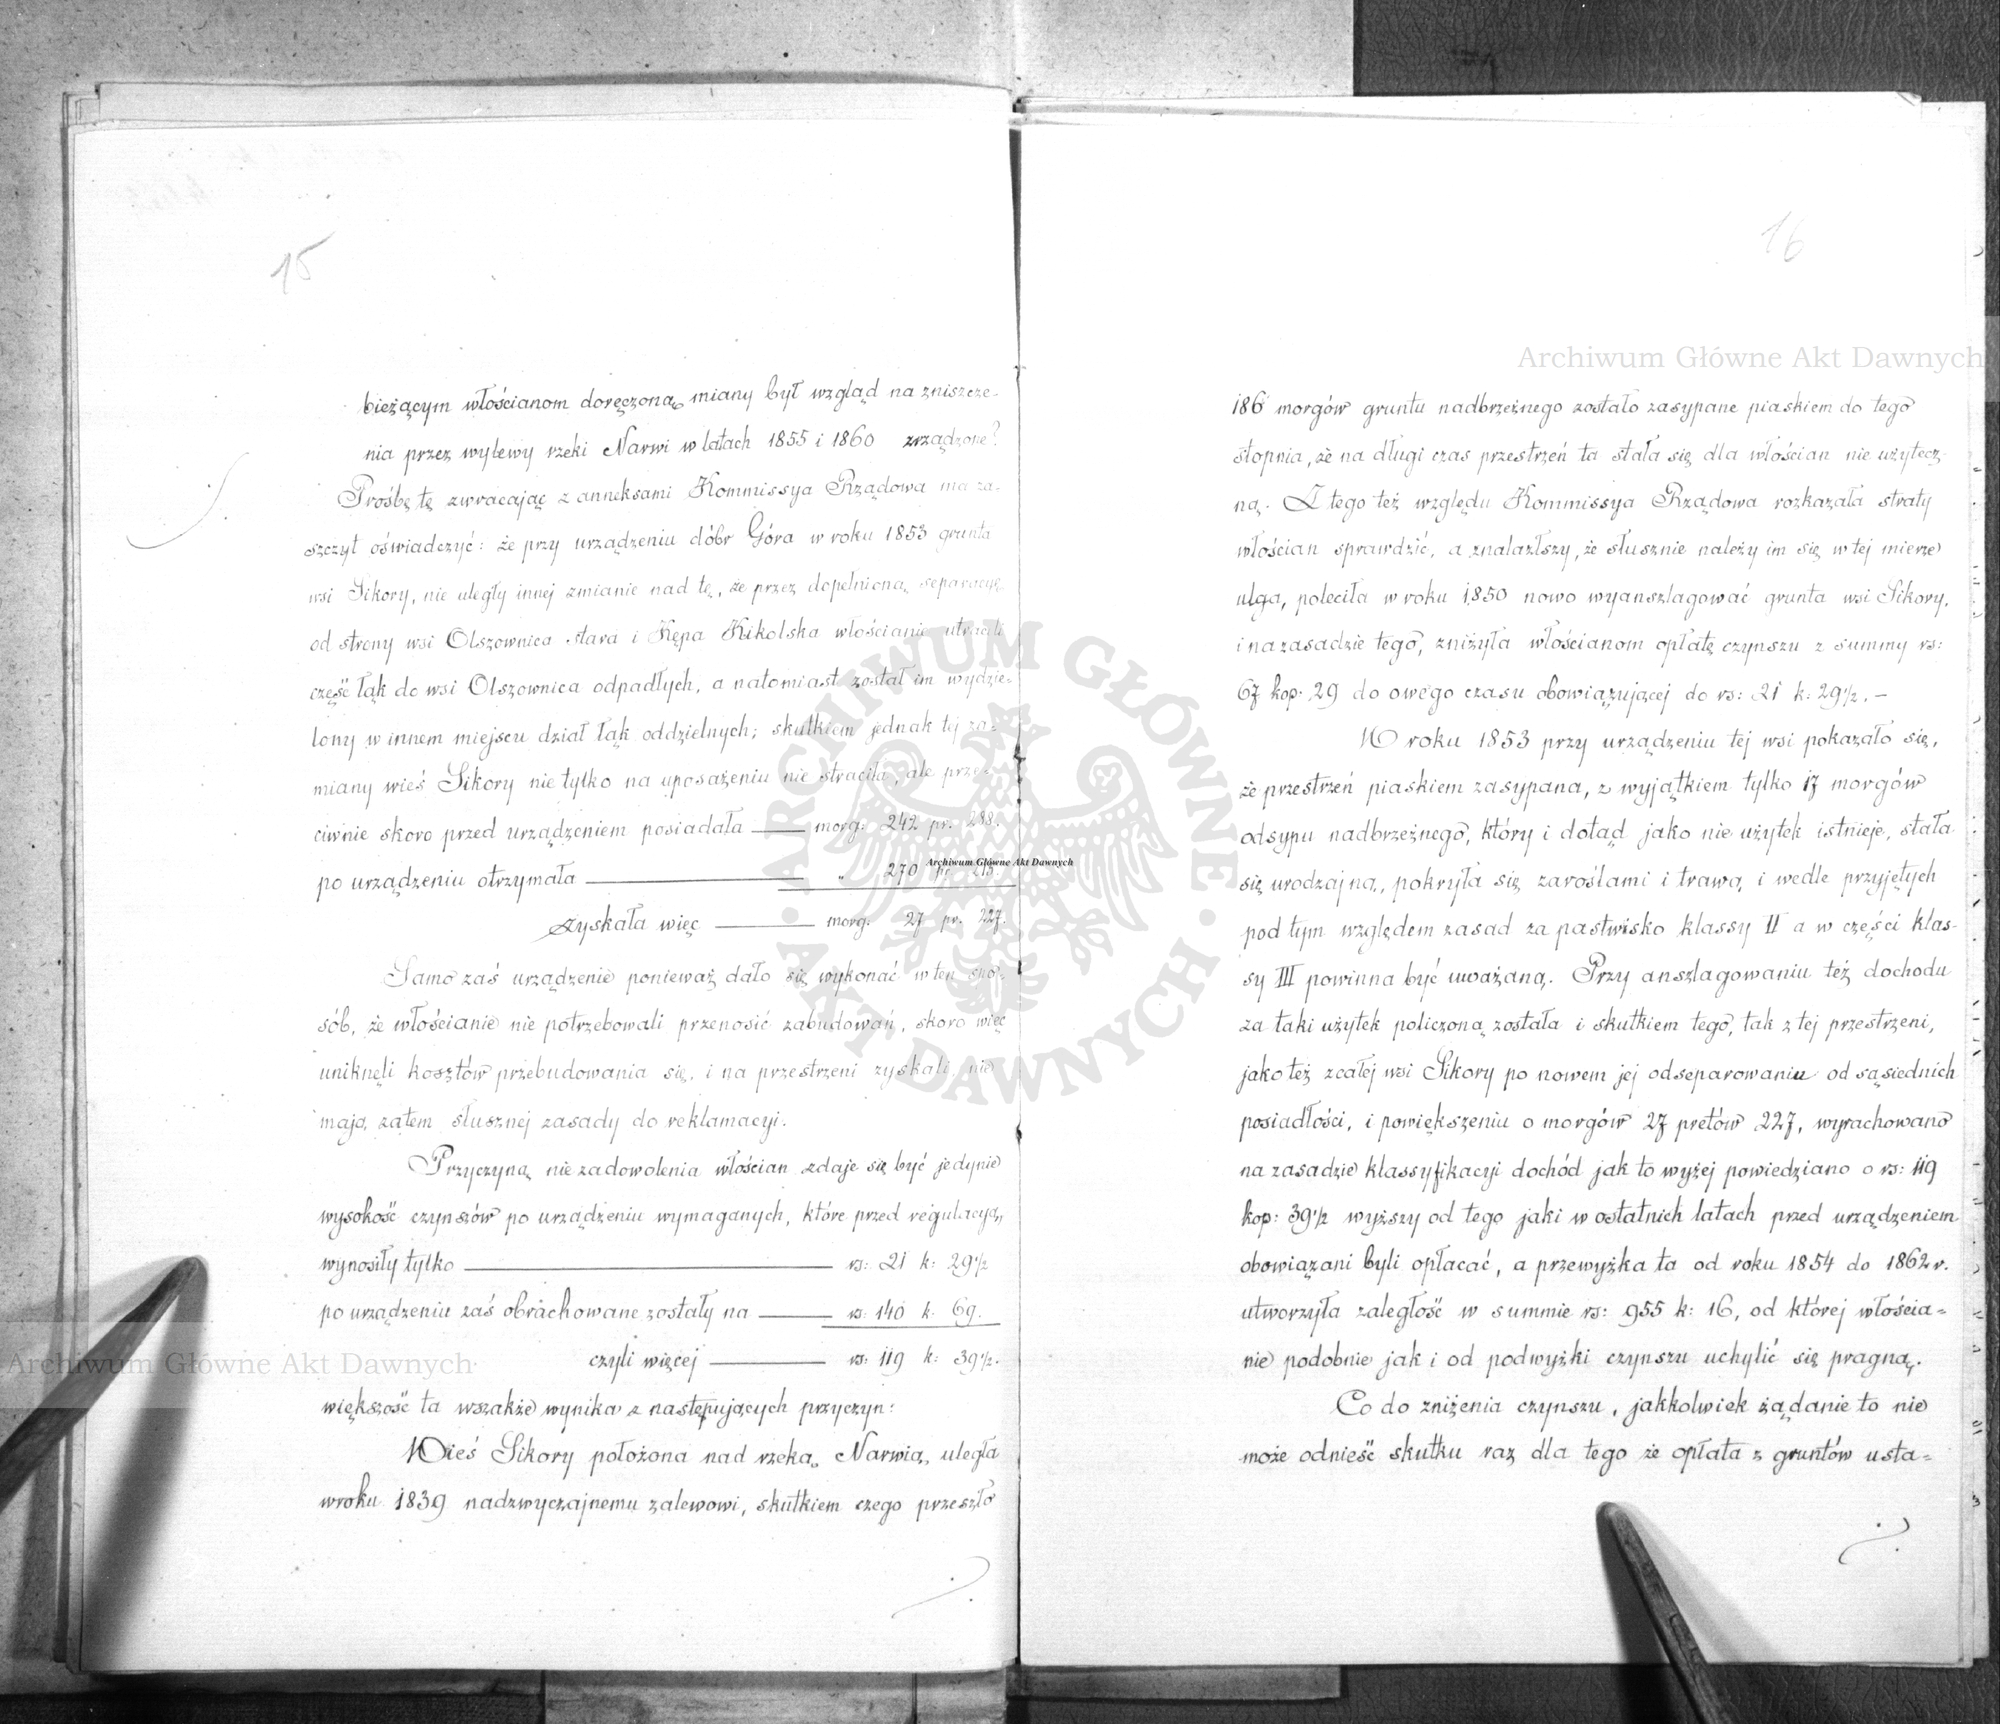 15
bieżącym włościanom doręczoną, miany był wzgląd na zniszcze-
nia przez wylewy rzeki Narwi w latach 1855 i 1860 zrządzone?
Prośbę tę zwracając z anneksami Kommissya Rządowa ma za-
szczyt oświadczyć: że przy urządzeniu dóbr Góra w roku 1853 grunta
wsi Sikory, nie uległy innej zmianie nad tę, że przez dopełnioną separacyę
od strony wsi Olszownica stara i Kępa Kikolska włościanie utracili
część łąk do wsi Olszownica odpadłych, a natomiast został im wydzie-
lony w innem miejscu dział łąk oddzielnych; skutkiem jednak tej za-
miany wieś Sikory nie tylko na uposażeniu nie straciła, ale prze-
ciwnie skoro przed urządzeniem posiadała — morg: 242 pr. 288.
po urządzeniu otrzymała — „ 270 pr. 215.
zyskała więc — morg: 27 pr. 227.
Samo zaś urządzenie ponieważ dało się wykonać w ten spo-
sób, że włościanie nie potrzebowali przenosić zabudowań, skoro więc
uniknęli kosztów przebudowania się, i na przestrzeni zyskali, nie
mają zatem słusznej zasady do reklamacyi.
Przyczyną niezadowolenia włościan zdaje się być jedynie
wysokość czynszów po urządzeniu wymaganych, które przed regulacyą,
wynosiły tylko — rs: 21 k: 29½
po urządzeniu zaś obrachowane zostały na — rs: 140 k: 69.
czyli więcej — rs: 119 k: 39½.
większość ta wszakże wynika z następujących przyczyn:
Wieś Sikory położona nad rzeką Narwią, uległa
w roku 1839 nadzwyczajnemu zalewowi, skutkiem czego przeszło
16
186 morgów gruntu nadbrzeżnego zostało zasypane piaskiem do tego
stopnia, że na długi czas przestrzeń ta stała się dla włościan nie użytecz-
ną. Z tego też względu Kommissya Rządowa rozkazała straty
włościan sprawdzić, a znalazłszy, że słusznie należy im się w tej mierze
ulga, poleciła w roku 1850 nowo wyanszlagować grunta wsi Sikory,
i na zasadzie tego, zniżyła włościanom opłatę czynszu z summy rs:
67 kop: 29 do owego czasu obowiązującej do rs: 21 k: 29½. —
W roku 1853 przy urządzeniu tej wsi pokazało się,
że przestrzeń piaskiem zasypana, z wyjątkiem tylko 17 morgów
odsypu nadbrzeżnego, który i dotąd jako nie użytek istnieje, stała
się urodzajną, pokryła się zaroślami i trawą i wedle przyjętych
pod tym względem zasad za pastwisko klassy II a w części klas-
sy III powinna być uważaną. Przy anszlagowaniu też dochodu
za taki użytek policzoną została i skutkiem tego, tak z tej przestrzeni,
jako też z całej wsi Sikory po nowem jej odseparowaniu od sąsiednich
posiadłości, i powiększeniu o morgów 27 prętów 227, wyrachowano
na zasadzie klassyfikacyi dochód jak to wyżej powiedziano o rs: 119
kop: 39½ wyższy od tego jaki w ostatnich latach przed urządzeniem
obowiązani byli opłacać, a przewyżka ta od roku 1854 do 1862 r.
utworzyła zaległość w summie rs: 955 k: 16, od której włościa-
nie podobnie jak i od podwyżki czynszu uchylić się pragną.
Co do zniżenia czynszu, jakkolwiek żądanie to nie
może odnieść skutku raz dla tego że opłata z gruntów usta-
Archiwum Główne Akt Dawnych
Archiwum Główne Akt Dawnych
Archiwum Główne Akt Dawnych
ARCHIWUM GŁÓWNE AKT DAWNYCH